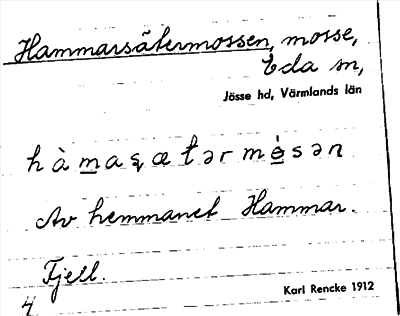 Hammarsätermossen, mosse,
Eda sn,
Jösse hd, Värmlands län
hàmasætərmòsən
Av hemmanet Hammar.
Fjell.
4
Karl Rencke 1912